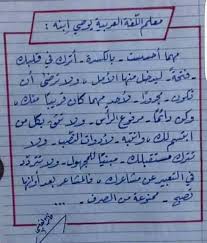 معلم اللغة العربية يوصي ابنه :
مهما أحسست - بالكسرة - أترك في قلبك
فتحة - ليدخل منها الأمل، ولا ترضى أن
تكون - مجروراً - لأحد مهما كان قريبا منك،
وكن دائماً - مرفوع الرأس - ولا تثق بكل من
ابتسم لك، وانتبه - لأدوات النصب - ولا
تترك مستقبلك - مبنياً للمجهول - ولا تتردد
في التعبير عن مشاعرك، فالمشاعر بعد أوانها
تصبح - ممنوعة من الصرف - ...